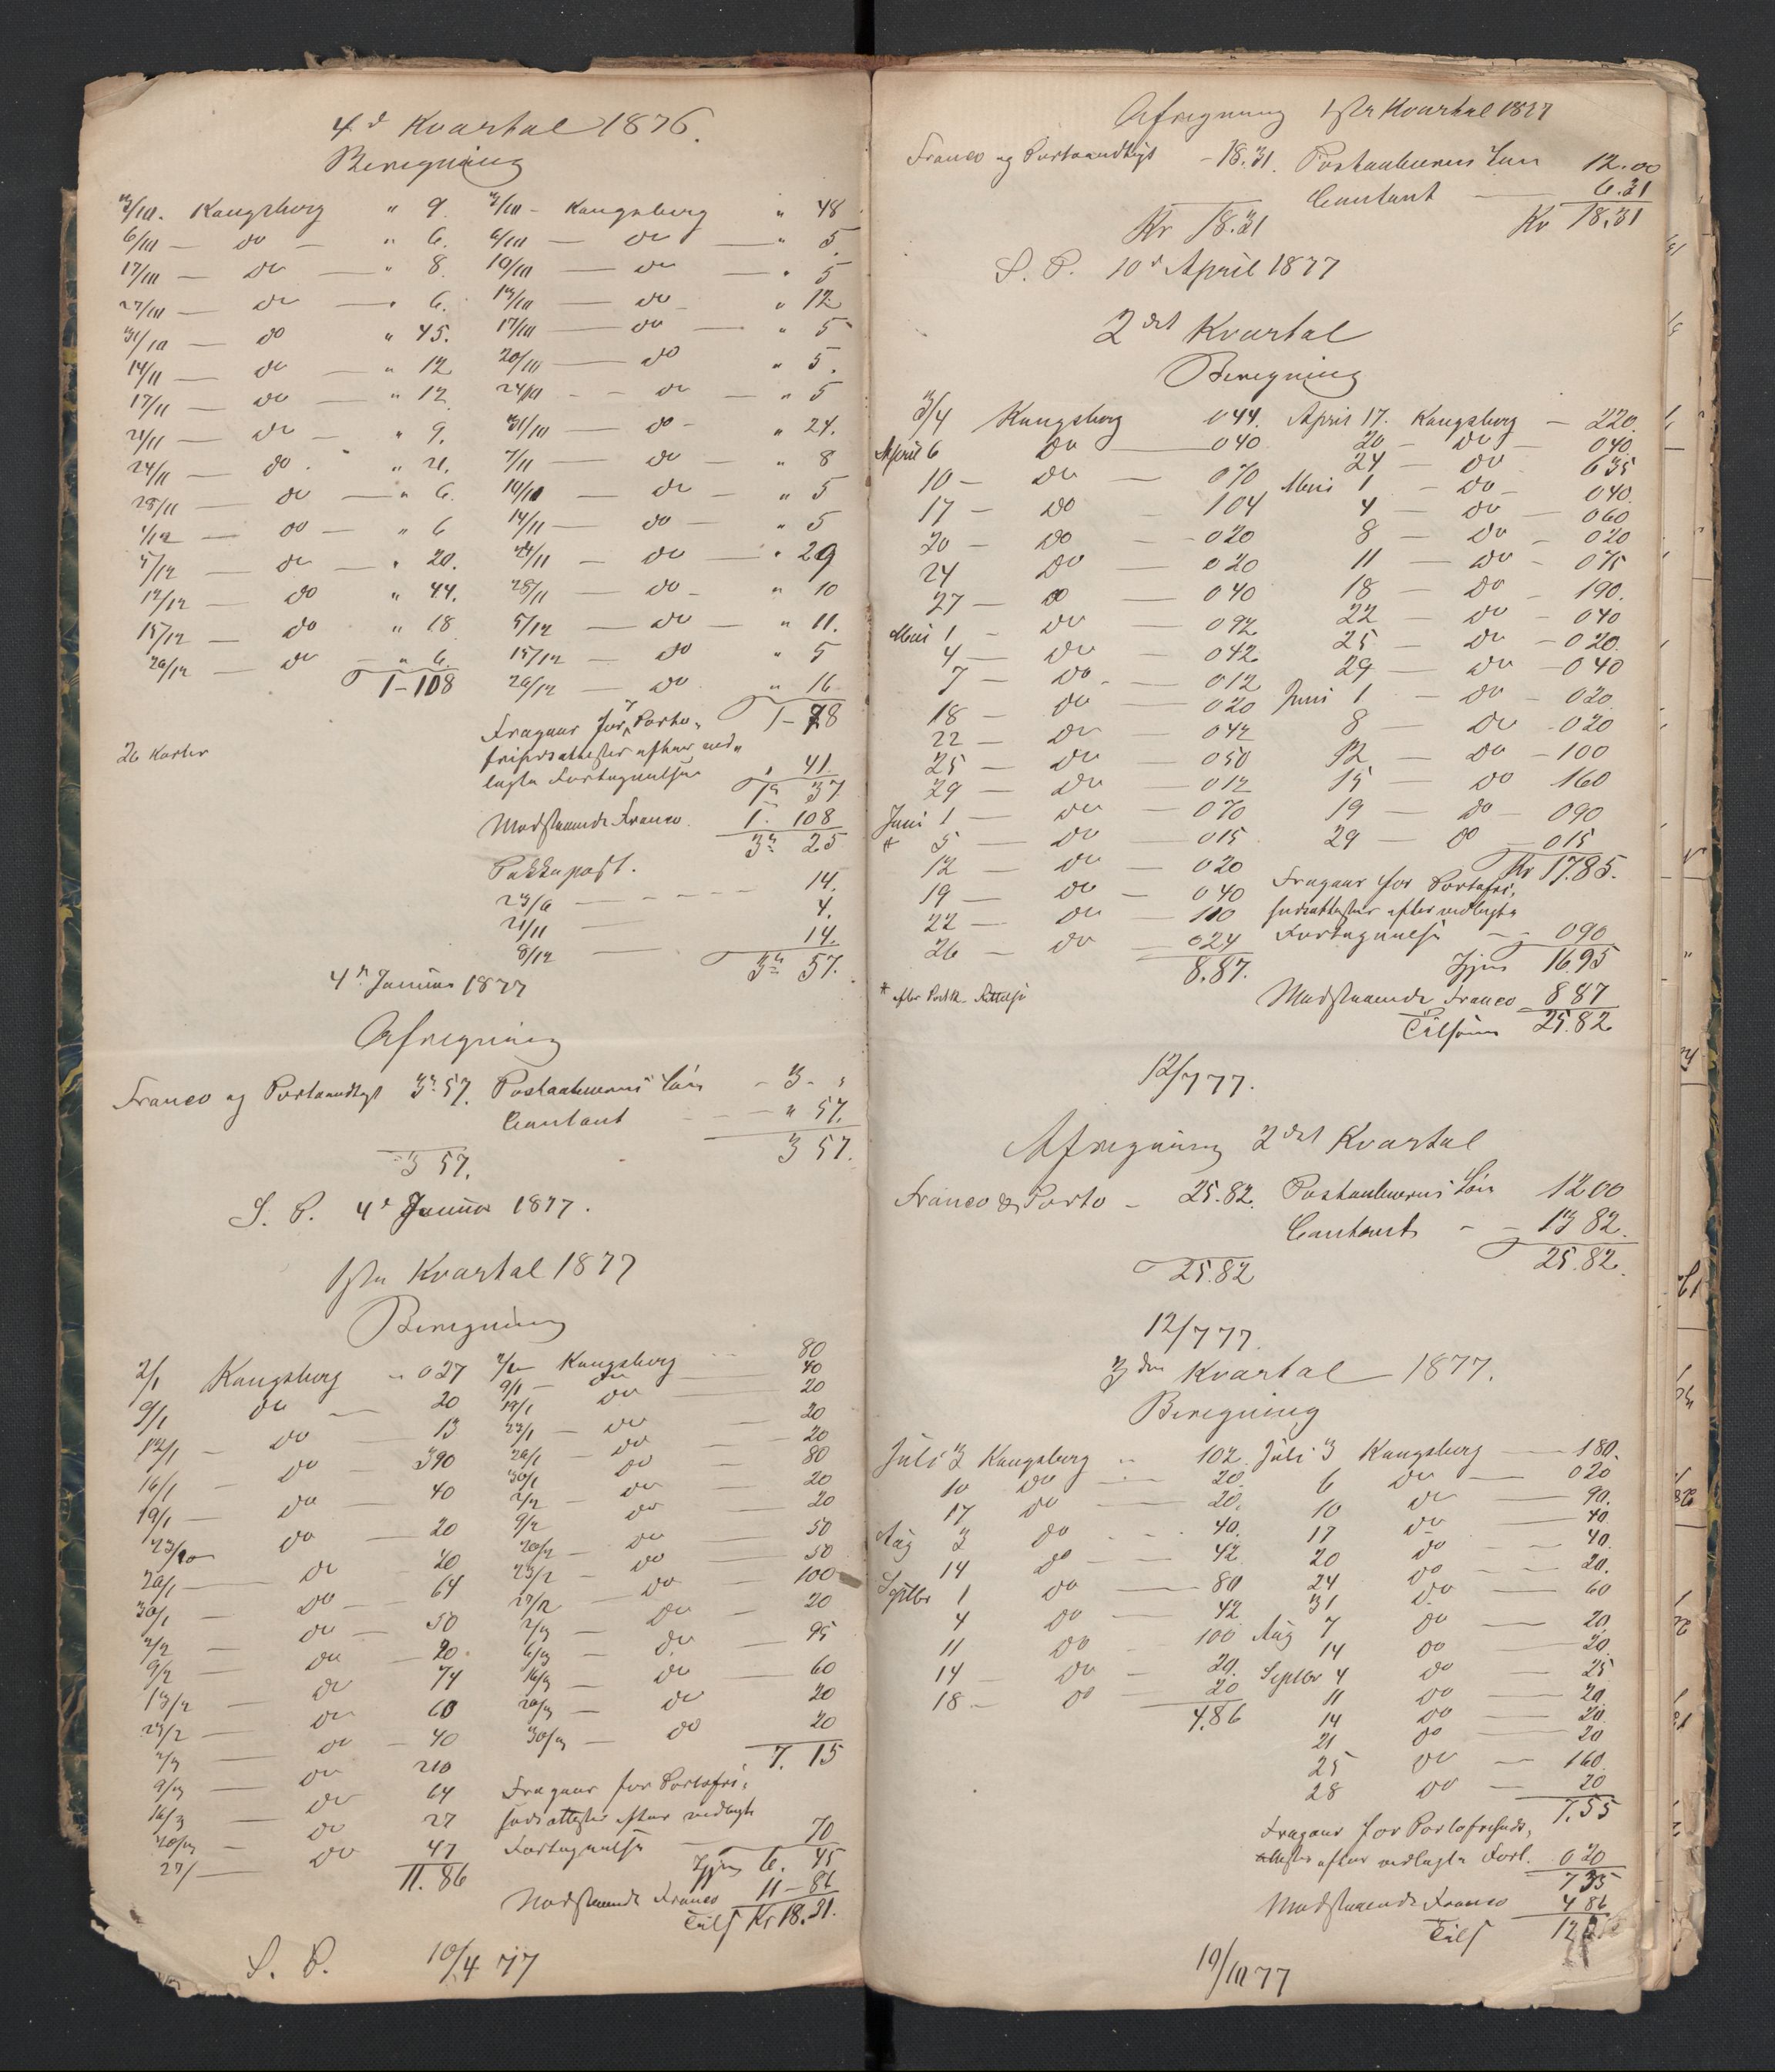 4d Kvartal 1876.
Beregning
3/10. Kongsberg " 9. 3/10 - Kongsberg " 48
6/10 — do — " 6. 6/10 — do — " 5
17/10 — do — " 8. 10/10 — do — " 5
27/10 — do — " 6. 13/10 — do - " 12
31/10 — do " 45. 17/10 — do — " 5
14/11 — do — " 12 20/10 — do " 5.
17/11 — do — " 12 24/10 - - do — " 5
21/11 — do — " 9. 31/10 — do - " 24.
24/11 — do. " 21. 7/11 — do — " 8
28/11 — do — " 6. 10/11 — do — " 5
1/12 — do — " 6 14/11 — do — " 5
5/12 — do — " 20. 24/11 — do — " 29
12/12 — do " 44. 28/11 — do - " 10
15/12 — do " 18 5/12 — do — " 11.
29/12 — do — " 6. 15/12 — do " 5
1-108 29/12 — do " 16
Fragaar for Porto- 1-78
frihedsattester efter ved-
26 Karter
lagte Fortegnelse " 41
1" 37
Modstaaende Franco. 1. 108
3" 25
Pakkepost.
23/6 — - - - 14.
21/11 — 4.
8/12 — 14.
3" 57.
4de Januar 1877
Afregning
Franco og Portoandtegt 3" 57. Postaabnerens Løn - 3 - "
Contant — " 57.
3 57. 3 57.
S. P. 4d Januar 1877.
1ste Kvartal 1877
Beregning
2/1 Kongsberg " 027 2/1 Kongsberg — 80
9/1 do — 20 9/1 — do 40
12/1 - do — 13 19/1 do — 20
16/1 - do — 390 23/1 — do — 20
19/1 — do — 40 26/1 — do — 20
23/1 do — 20 30/1 do — 80
26/1 — do 20 2/2 — do — 20
30/1 — do — 64 9/2 do — 20
2/2 — do — 50 20/2 — do — 50
9/2 — do — 20. 23/2 — do — 50
13/2 — do 74 27/2 — do — 100
23/2 — do 60 2/3 — do — 20
2/3 — do — 40 6/3 — do — 95
9/3 — do 210 16/3 — do — 60
16/3 — do 64 20/3 — do 20
20/3 - do 27 30/3 — do 20
27/ — do 47 7. 15
11. 86
Fragaar for Portofri-
hedsattester efter vedlagte
Fortegnelse — 70
Igjen 6. 45
Modstaaende Franco 11-86
Tils Kr 18.31.
S. P. 10/4 77
Afregning 1ste Kvartal 1877
Franco og Portoandtegt - 18.31. Postaabnerens Løn 12.00
Contant — 6.31
Kr 18.31 Kr 18.31
S. P. 10d April 1877
2det Kvartal
Beregning
3/4 Kongsberg 044. April 17. Kongsberg — 220.
April 6 do — 040 20 - do 040.
10 — do — 070 24 — do 635
17 — do 104 Mai 1 - do - 040.
20 — do — 020 4 — do — 060
24 do — 020 8 — do - 020
27 — do — 040 11 — do - 075
Mai 1 - do — 092 18 — do — 190.
4 — do — 042 22 — do — 040
7 — do - 012 25 — do - 020.
18 — do — 020 29 — do — 040
22 — do — 042 Juni 1 - do - 020
25 — do — 050 8 — do - 020
29 — do — 012 12 — do - 100
Juni 1 — do — 070 15 — do 160
* 5 — do — 015 19 — do — 090
12 — do — 020 29 — do — 015
19 — do — 040 Kr 17.85.
22 — do — 110 Fragaar for Portofri-
26 — do — 024 hedsattester efter vedlagte
8.87. Fortegnelse — 090
Igjen 16.95
* efter Postk. Rettelse
Modstaaende Franco 8 87
Tilsammen 25.82
12/7 77.
Afregning 2det Kvartal
Franco & Porto - 25.82. Postaabnerens Løn 12 00
Contant - - 13 82.
25.82 25.82.
12/7 77.
3die Kvartal 1877.
Beregning
Juli 3 Kongsberg " 102. Juli 3 Kongsberg — 180.
10 do — 20. 6 do — 020
17 do — 20. 10 do — 90.
Aug 3 do - . 40. 17 do — 40.
14 do — 42 20 do — 40.
Septbr 1 do — 80 24 do — 20.
4 do — 42 31 do — 60
11 do - 100 Aug 7 do — 20.
14 — do — 20. 14 do — 20.
18 — do — 20 Septbr 4 do — 25
4.86 11 do — 20.
14 do — 20.
21 do — 20
25 do — 160.
28 do — 20
7.55
Fragaar for Portofriheds-
attester efter vedlagte Fort. 0 20
7 35
Modstaaende Franco 4 86
Tils
10/10 77